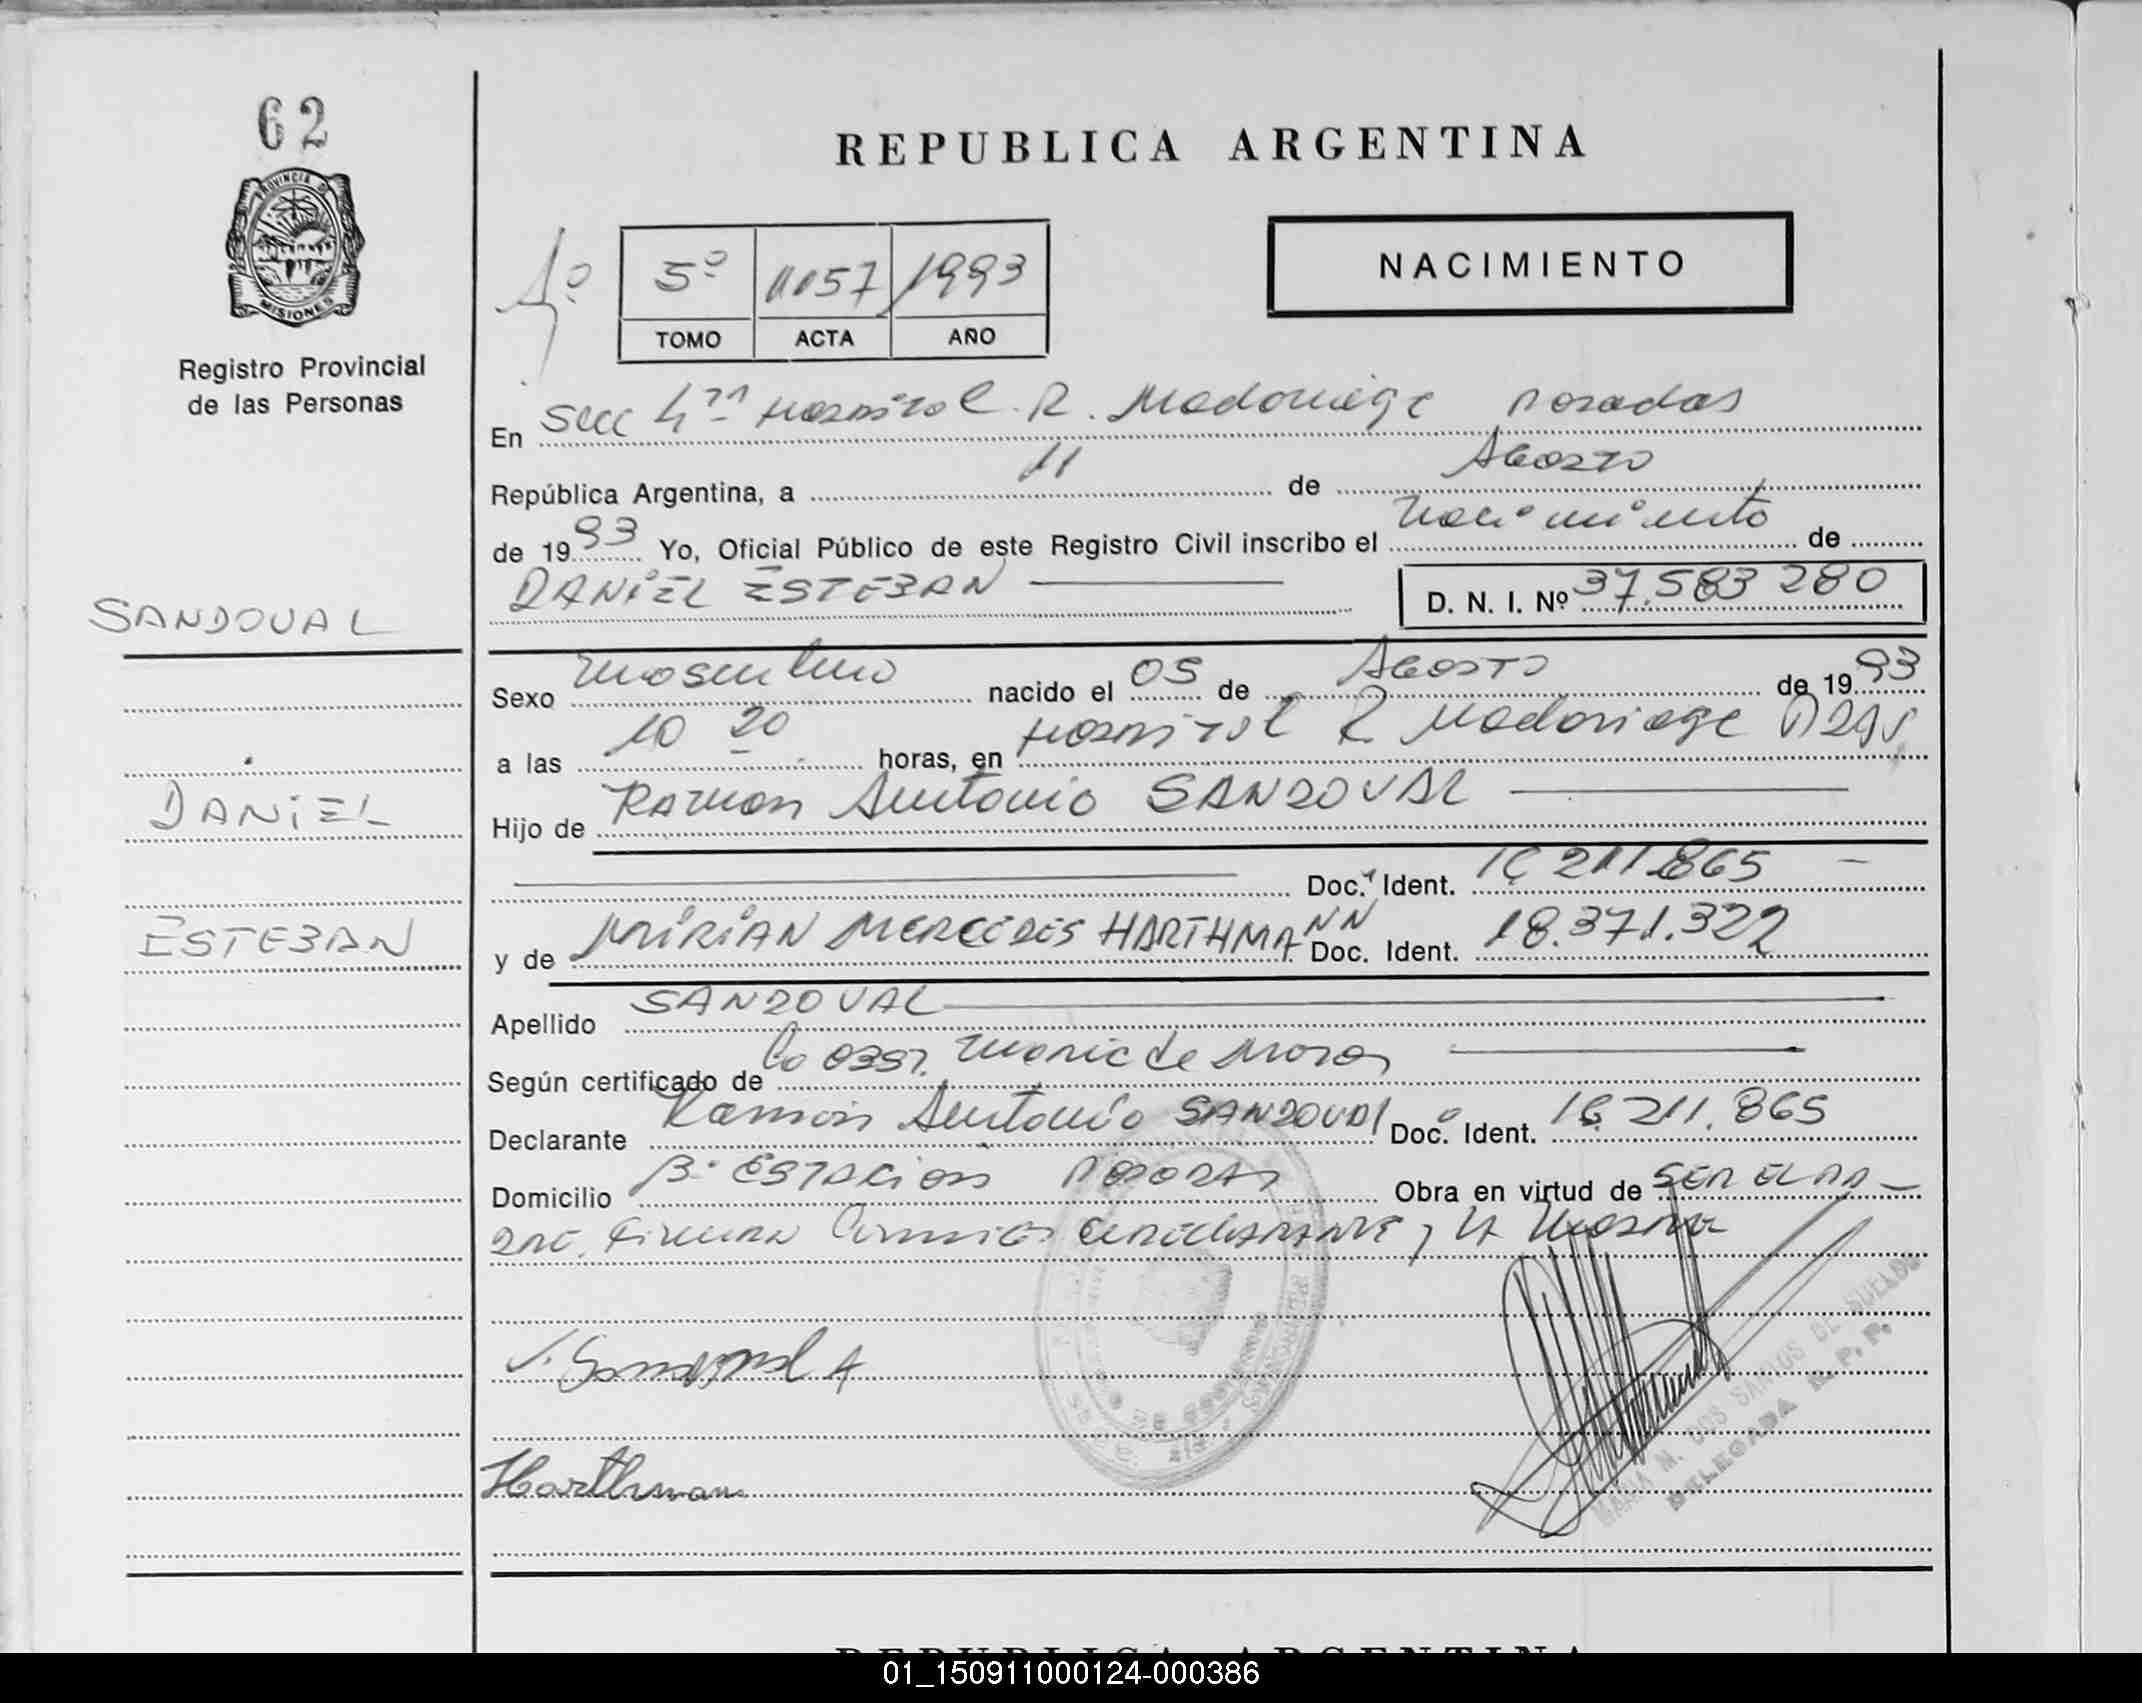 62
PROVINCIA DE
MISIONES
Registro Provincial
de las Personas
REPUBLICA ARGENTINA
NACIMIENTO
5º 1157 1993
TOMO ACTA AÑO
En Secc 4ta Hospital R. Madariaga Posadas
República Argentina, a 11 de Agosto
de 1993 Yo, Oficial Público de este Registro Civil inscribo el nacimiento de
DANIEL ESTEBAN
D. N. I. Nº 37.583 280
SANDOVAL
Sexo masculino nacido el 05 de Agosto de 1993
a las 10 20 horas, en Hospital R Madariaga
DANIEL
Hijo de Ramon Antonio SANDOVAL
Doc. Ident. 16 211 865
ESTEBAN
y de MIRIAN MERCEDES HARTHMANN Doc. Ident. 18.371.322
Apellido SANDOVAL
Según certificado de
Declarante Ramon Antonio SANDOVAL Doc. Ident. 16.211.865
Domicilio Bº ESTACION POSADAS Obra en virtud de SER EL PA-
DRE. FIRMAN DECLARANTE y LA
Harthman
MARIA N. DOS SANTOS DE
DELEGADA R. P. P.
REPUBLICA ARGENTINA
01_150911000124-000386